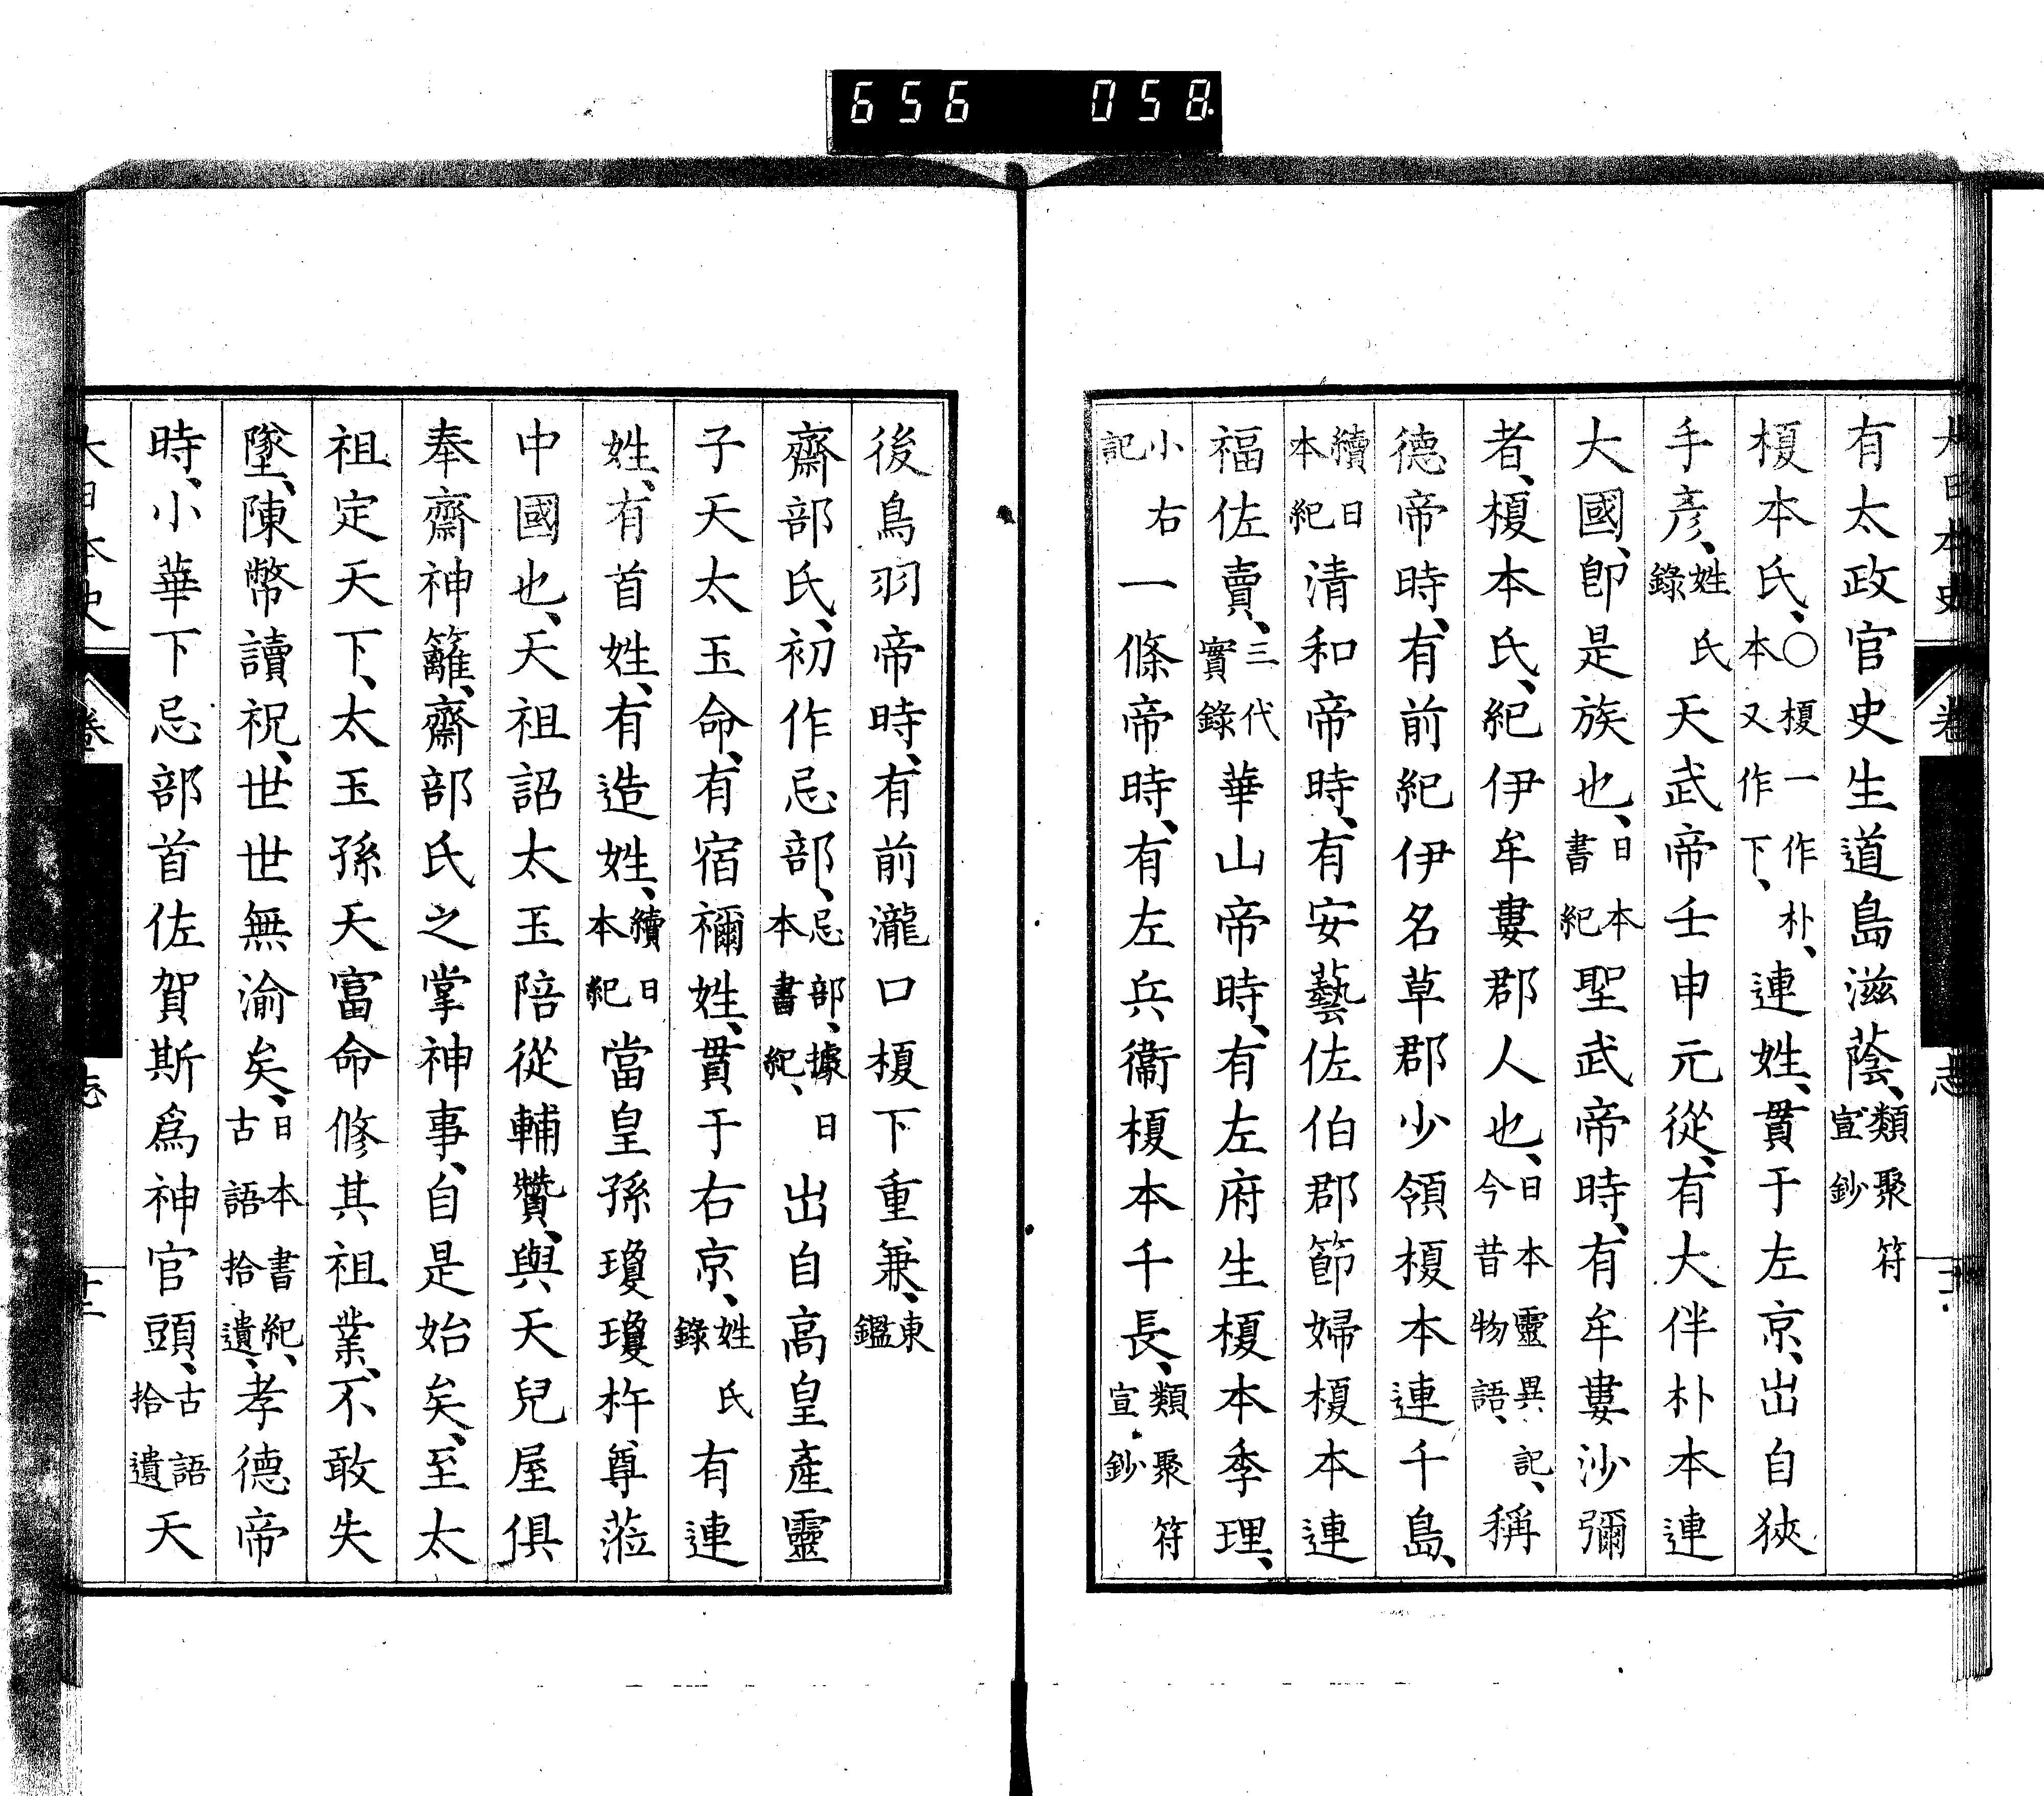 656 058
大日本史 卷 志
有太政官史生道島滋蔭、類聚符宣鈔
榎本氏、○榎一作朴、本又作下、連姓、貫于左京、出自狹
手彥、姓氏錄天武帝壬申元從、有大伴朴本連
大國、卽是族也、日本書紀聖武帝時、有牟婁沙彌
者、榎本氏、紀伊牟婁郡人也、日本靈異記、今昔物語、稱
德帝時、有前紀伊名草郡少領榎本連千島、
續日本紀清和帝時、有安藝佐伯郡節婦榎本連
福佐賣、三代實錄華山帝時、有左府生榎本季理、
小右記一條帝時、有左兵衞榎本千長、類聚符宣鈔
後鳥羽帝時、有前瀧口榎下重兼、東鑑
齋部氏、初作忌部、忌部、據日本書紀、出自高皇產靈
子天太玉命、有宿禰姓、貫于右京、姓氏錄有連
姓、有首姓、有造姓、續日本紀當皇孫瓊瓊杵尊莅
中國也、天祖詔太玉陪從輔贊、與天兒屋俱
奉齋神籬、齋部氏之掌神事、自是始矣、至太
祖定天下、太玉孫天富命修其祖業、不敢失
墜、陳幣讀祝、世世無渝矣、日本書紀、古語拾遺、孝德帝
時、小華下忌部首佐賀斯爲神官頭、古語拾遺天
大日本史 卷 志